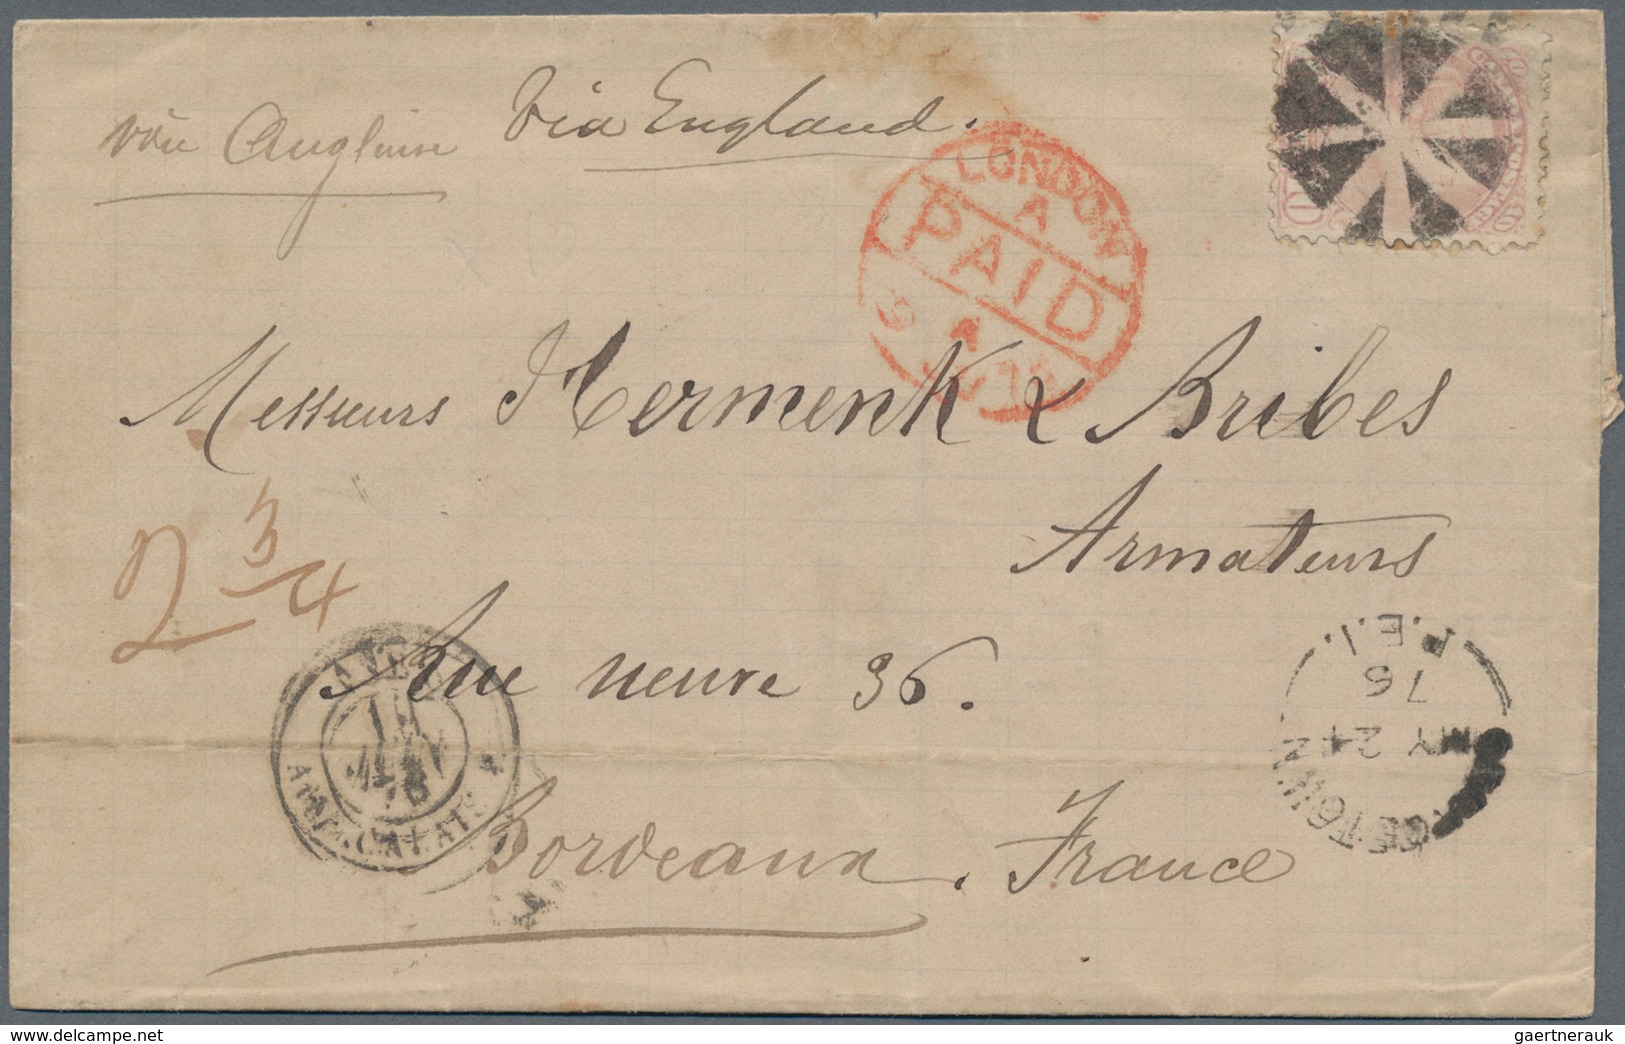 voie Angleterre
Via England.
LONDON
A
PAID
Messieurs Hermenk & Bribes
Armateurs
2 3/4
Rue neuve 36.
Bordeaux. France
CALAIS
TOWN
MY 24
76
P.E.I.
10
gaertnerauk